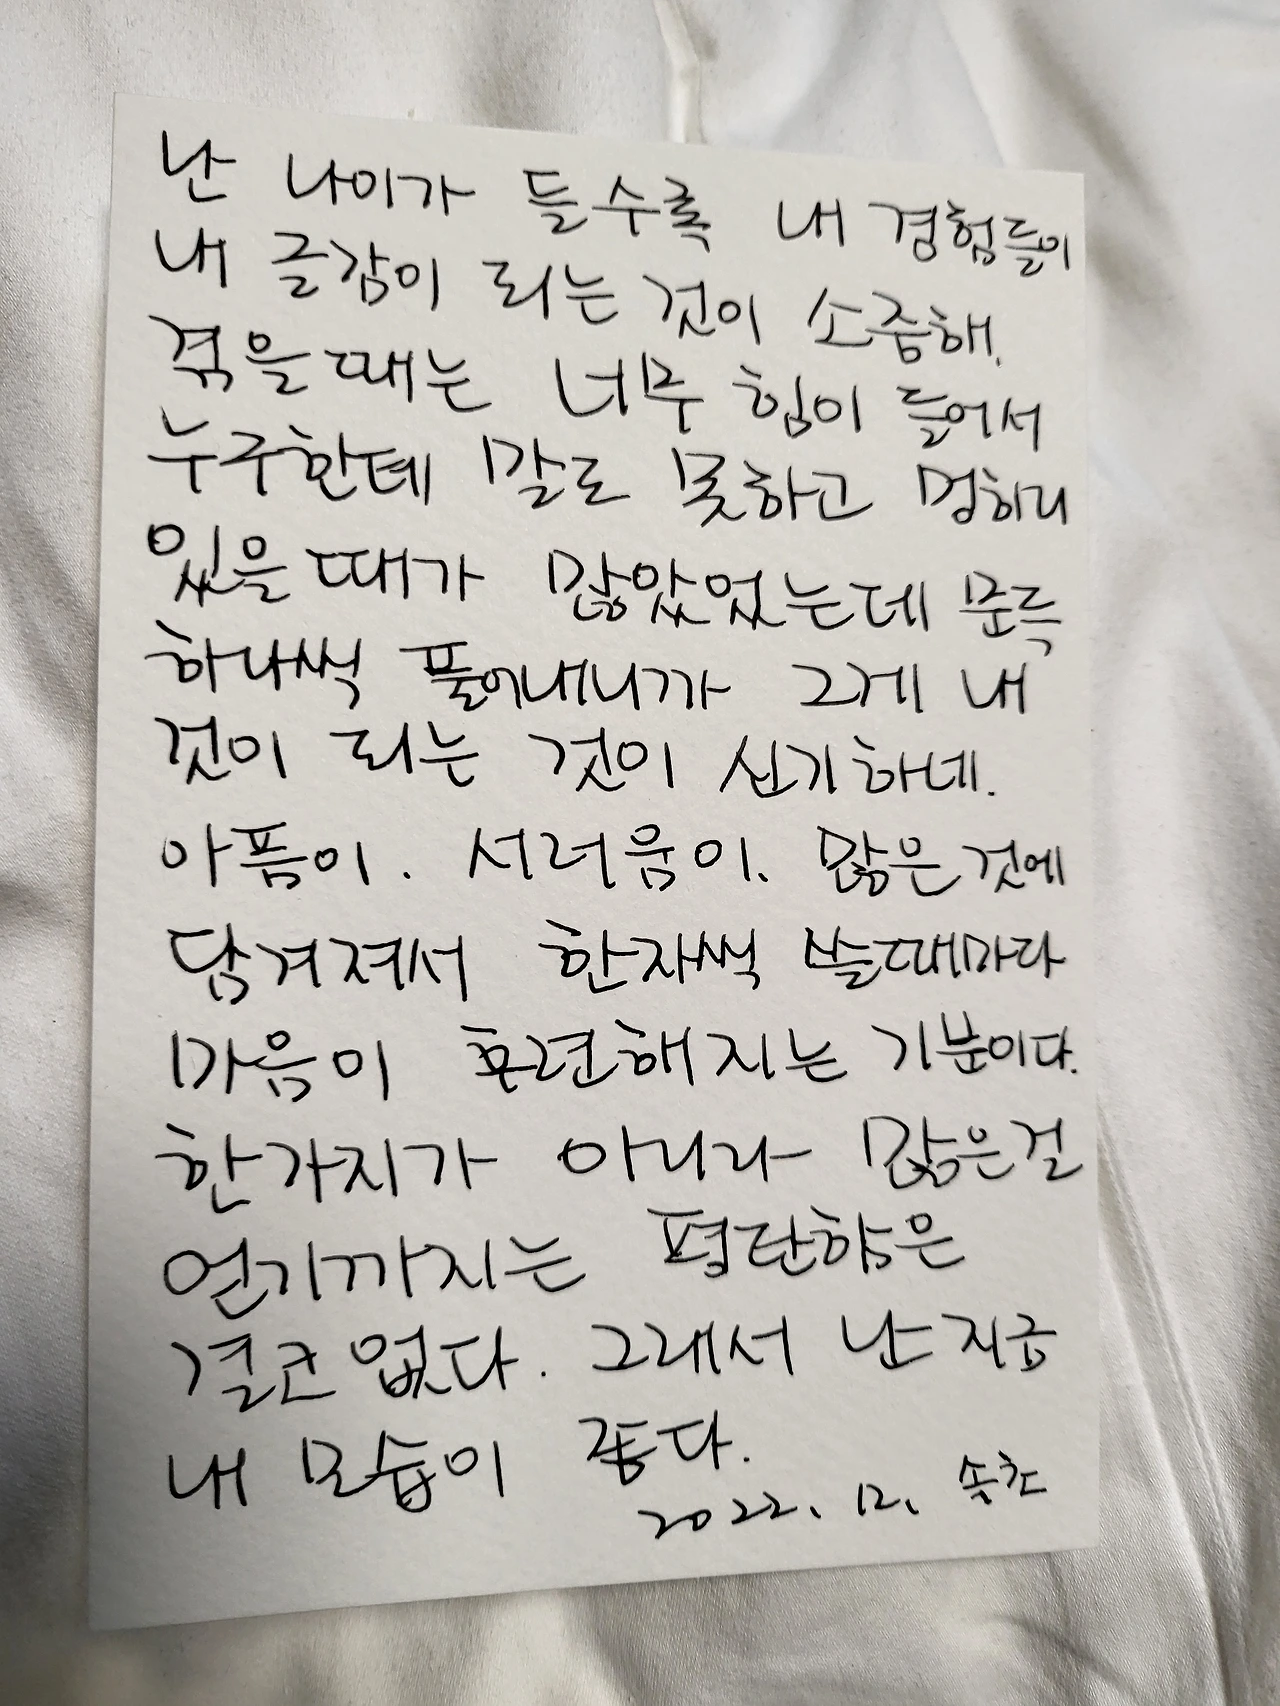 난 나이가 들수록 내 경험들이
내 글감이 되는 것이 소중해.
겪을때는 너무 힘이 들어서
누구한테 말로 못하고 멍하니
있을때가 많았었는데 문득
하나씩 풀어내니까 그게 내
것이 되는 것이 신기하네.
아픔이. 서러움이. 많은것에
담겨져서 한자씩 쓸때마다
마음이 훈련해지는 기분이다.
한가지가 아니라 많은걸
얻기까지는 평탄함은
결코 없다. 그래서 난 지금
내 모습이 좋다.
2022. 12.